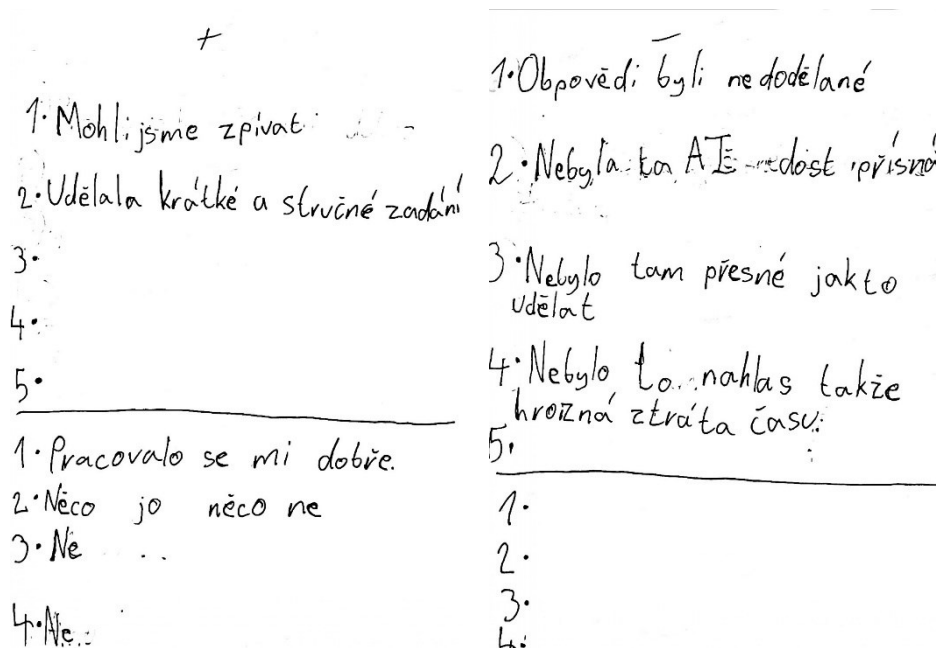 +
1. Mohli jsme zpívat
2. Udělala krátké a stručné zadání
3.
4.
5.
1. Pracovalo se mi dobře.
2. Něco jo něco ne
3. Ne
4. Ne
-
1. Obpovědi byli nedodělané
2. Nebyla ta dost přísná
3. Nebylo tam přesné jak to
udělat
4. Nebylo to nahlas takže
hrozná ztráta času.
5.
1.
2.
3.
4.